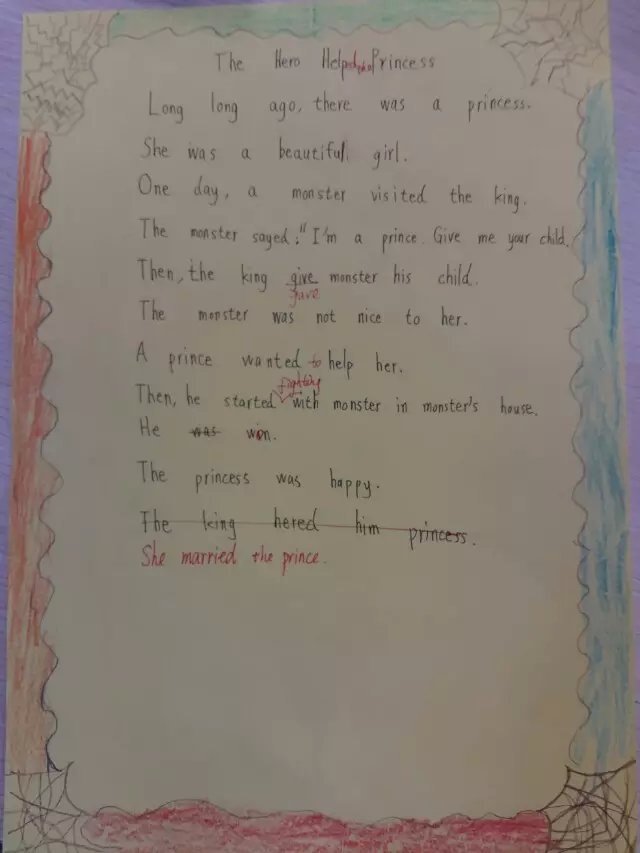 The Hero Helped the Princess
Long long ago, there was a princess.
She was a beautiful girl.
One day, a monster visited the king.
The monster sayed, "I'm a prince. Give me your child.
Then, the king give monster his child.
gave
The monster was not nice to her.
A prince wanted to help her.
fighting
Then, he started with monster in monster's house.
He was won.
The princess was happy.
The king hered him princess.
She married the prince.